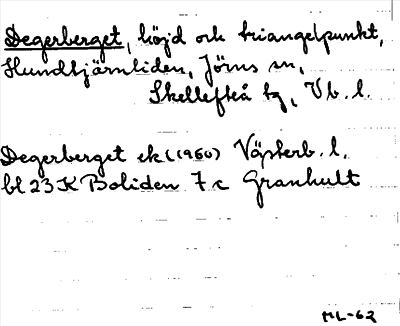 Degerberget, höjd och triangelpunkt,
Hundtjärnliden, Jörns sn,
Skellefteå tg, Vb. l.
Degerberget ek (1960) Västerb. l.
bl 23 K Boliden 7 c Granhult
ML-62